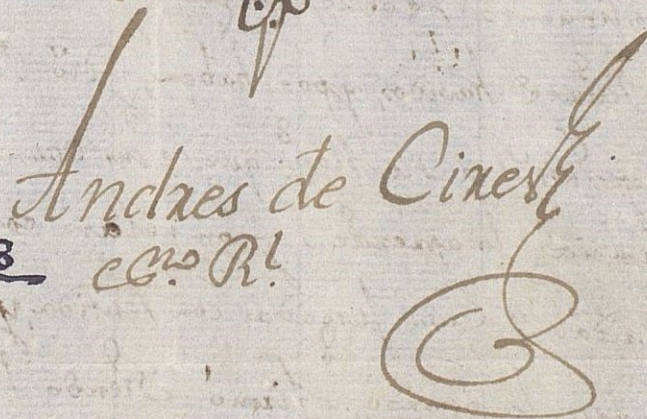 Andres de Cires
esno Rl.